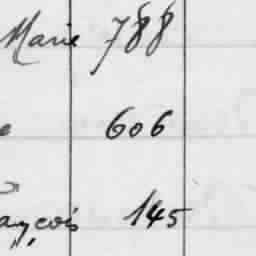 Marie 788
e 606
ançois 145